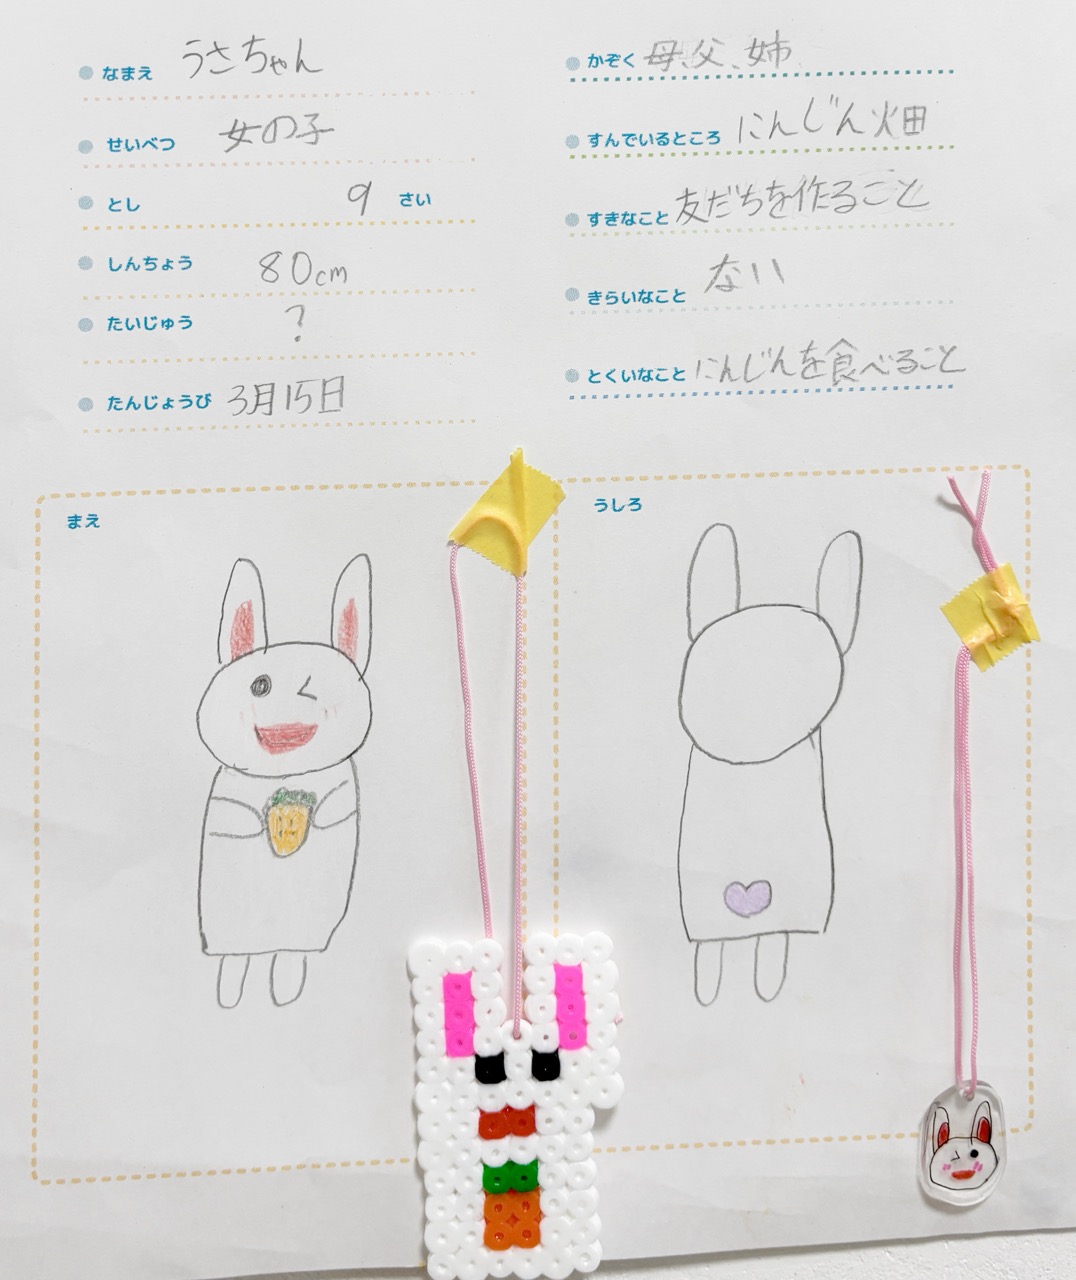 なまえ うさちゃん
せいべつ 女の子
とし 9 さい
しんちょう 80cm
たいじゅう ?
たんじょうび 3月15日
かぞく 母、父、姉
すんでいるところ にんじん畑
すきなこと 友だちを作ること
きらいなこと ない
とくいなこと にんじんを食べること
まえ
うしろ